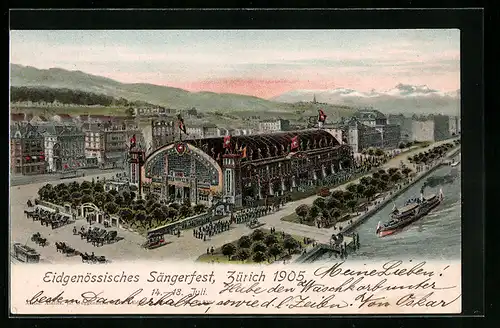 Eidgenössisches Sängerfest, Zürich 1905.
14. - 18. Juli.
Meine Lieben!
Habe den Waschkorb unter
bestem Dank erhalten, sowie d. l. Zeilen. Von Oskar